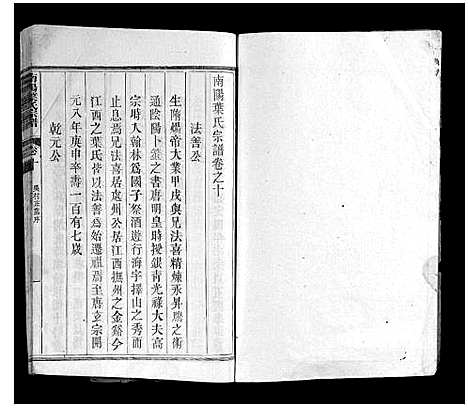 南陽葉氏宗譜卷之十
法善公
生隋煬帝大業甲戌與兄法喜精煉汞昇鷹之術
通陰陽卜筮之書唐明皇時授銀青光祿大夫高
宗時人翰林爲國子祭酒遊行海宇擇山之秀而
止息焉兄法喜居處州公居江西撫州之金谿今
江西之葉氏俻以法善爲始遷祖焉至唐玄宗開
元八年庚申卒壽一百有七歲
乾元公
南陽葉氏宗譜
卷十